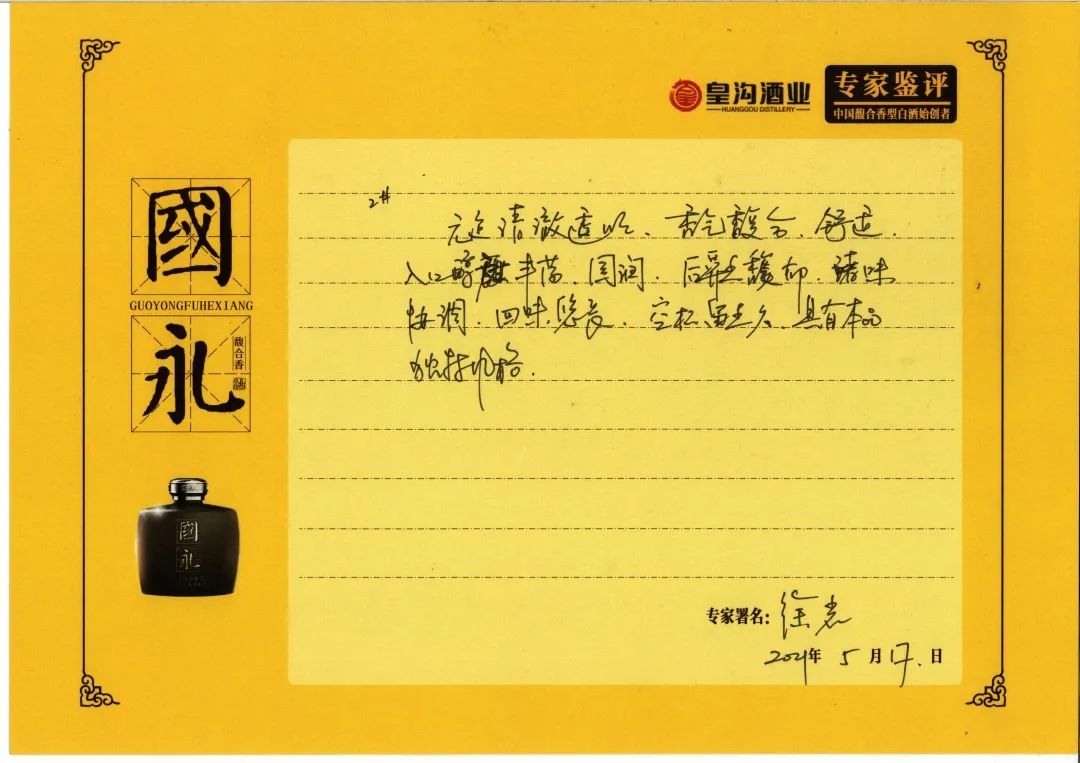 皇沟酒业
HUANGGOU DISTILLERY
专家鉴评
中国馥合香型白酒始创者
國
GUOYONGFUHEXIANG
永
馥合香
國
永
2#
无色清澈透明、香气馥合、舒适、
入口醇甜丰富、圆润、后味馥郁、诸味
协调、回味悠长、空杯留香久、具有本品
独特风格.
专家署名:徐
2021年 5 月17.日